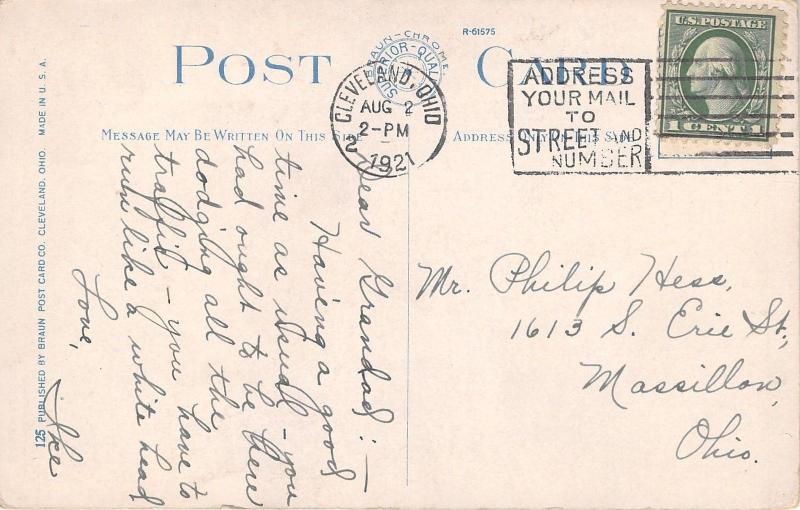 R-61575
POST CARD
BRAUN-CHROME
SUPERIOR-QUALITY
MESSAGE MAY BE WRITTEN ON THIS SIDE
ADDRESS ONLY ON THIS SIDE
CLEVELAND, OHIO
AUG 2
2-PM
1921
2
ADDRESS
YOUR MAIL
TO
STREET AND
NUMBER
U.S. POSTAGE
1 CENT 1
Dear Grandad:—
Having a good
time as usual - you
had ought to be here
dodging all the
traffic - you have to
run like a white head
Love,
Ike
Mr. Philip Hess,
1613 S. Erie St.,
Massillon,
Ohio.
125 PUBLISHED BY BRAUN POST CARD CO. CLEVELAND, OHIO. MADE IN U. S. A.